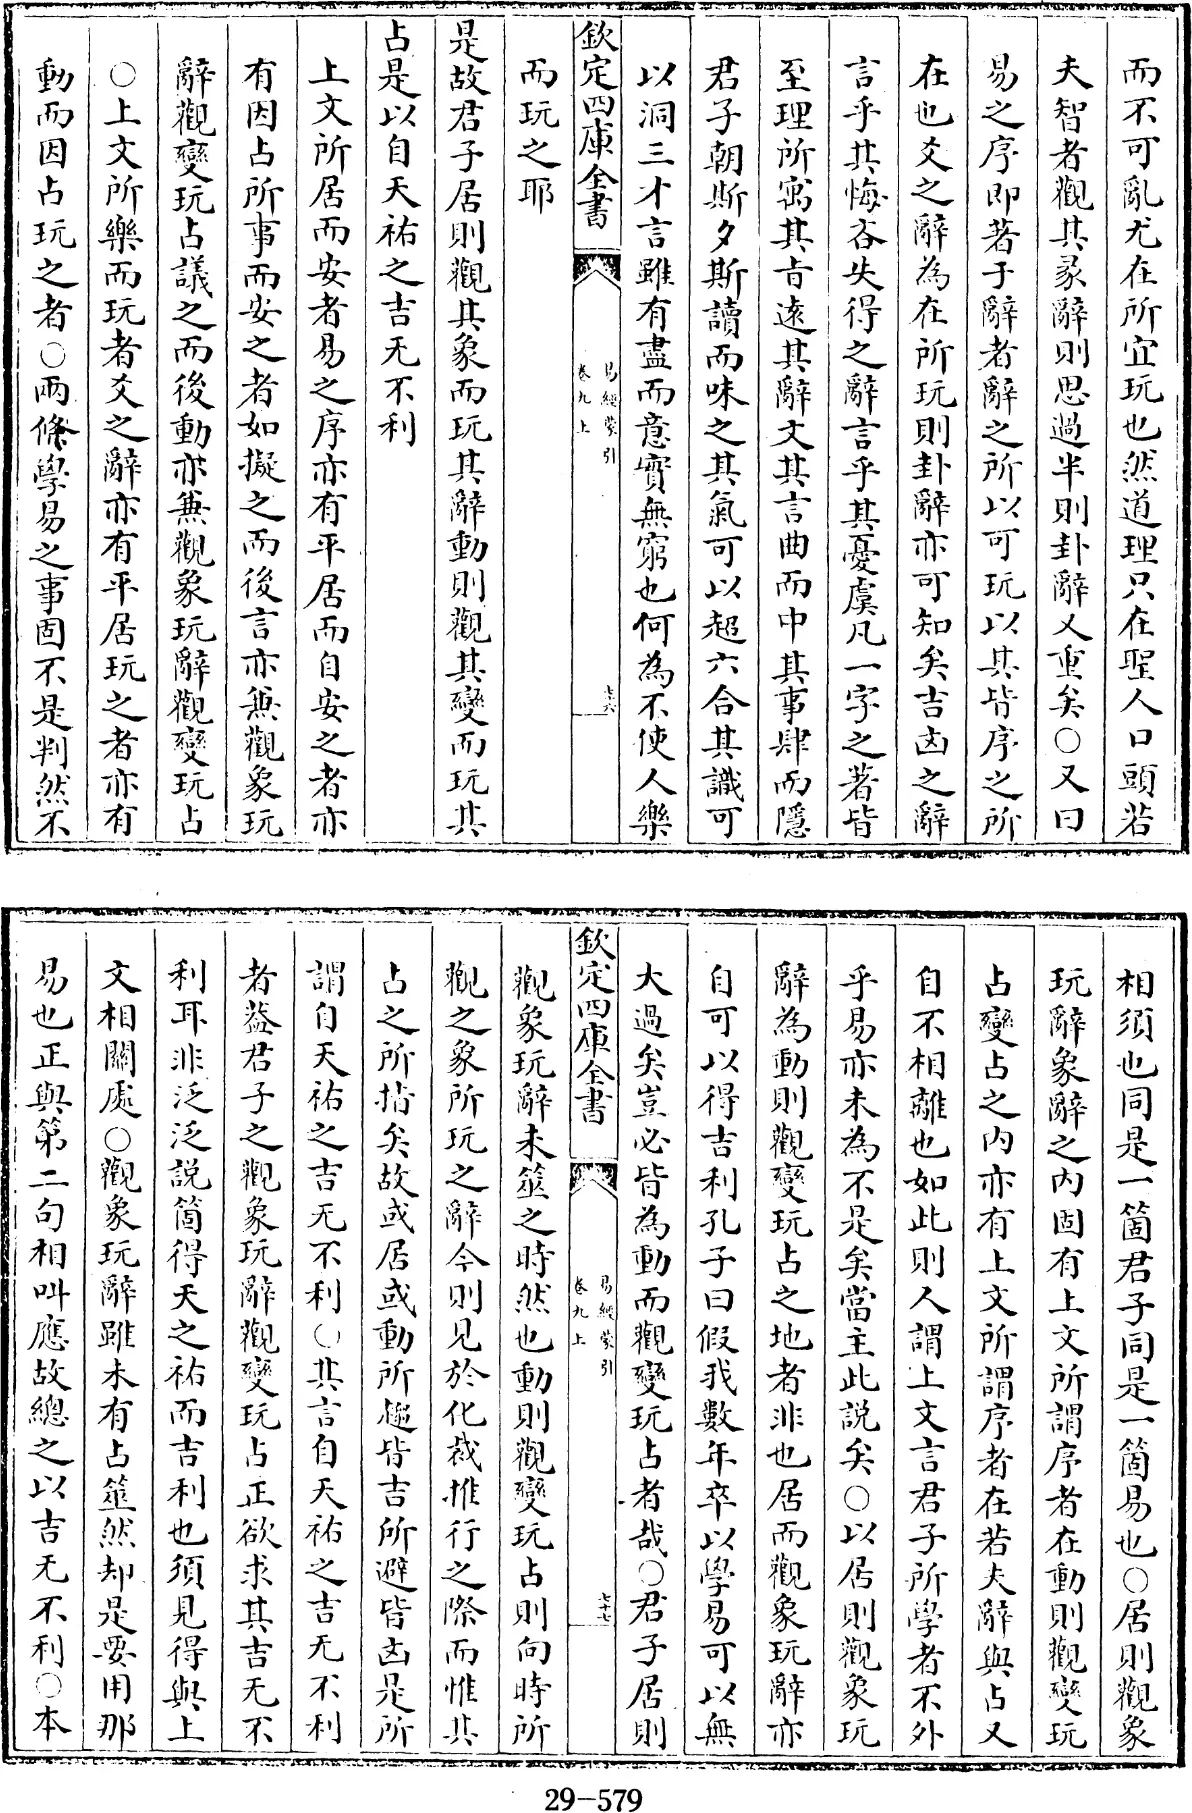 而不可亂尤在所宜玩也然道理只在聖人口頭若
夫智者觀其彖辭則思過半則卦辭又重矣○又曰
易之序即著于辭者辭之所以可玩以其皆序之所
在也爻之辭為在所玩則卦辭亦可知矣吉凶之辭
言乎其悔吝失得之辭言乎其憂虞凡一字之著皆
至理所寓其㫖逺其辭文其言曲而中其事肆而隱
君子朝斯夕斯讀而味之其氣可以超六合其識可
以洞三才言雖有盡而意實無窮也何為不使人樂
欽定四庫全書
易經蒙引
卷九上
七十六
而玩之耶
是故君子居則觀其象而玩其辭動則觀其變而玩其
占是以自天祐之吉无不利
上文所居而安者易之序亦有平居而自安之者亦
有因占所事而安之者如擬之而後言亦兼觀象玩
辭觀變玩占議之而後動亦兼觀象玩辭觀變玩占
○上文所樂而玩者爻之辭亦有平居玩之者亦有
動而因占玩之者○兩條學易之事固不是判然不
相須也同是一箇君子同是一箇易也○居則觀象
玩辭象辭之内固有上文所謂序者在動則觀變玩
占變占之内亦有上文所謂序者在若夫辭與占又
自不相離也如此則人謂上文言君子所學者不外
乎易亦未為不是矣當主此説矣○以居則觀象玩
辭為動則觀變玩占之地者非也居而觀象玩辭亦
自可以得吉利孔子曰假我數年卒以學易可以無
大過矣豈必皆為動而觀變玩占者哉○君子居則
欽定四庫全書
易經蒙引
卷九上
七十七
觀象玩辭未筮之時然也動則觀變玩占則向時所
觀之象所玩之辭今則見於化裁推行之際而惟其
占之所指矣故或居或動所趨皆吉所避皆凶是所
謂自天祐之吉无不利○其言自天祐之吉无不利
者葢君子之觀象玩辭觀變玩占正欲求其吉无不
利耳非泛泛説箇得天之祐而吉利也須見得與上
文相關處○觀象玩辭雖未有占筮然却是要用那
易也正與第二句相叫應故總之以吉无不利○本
29-579